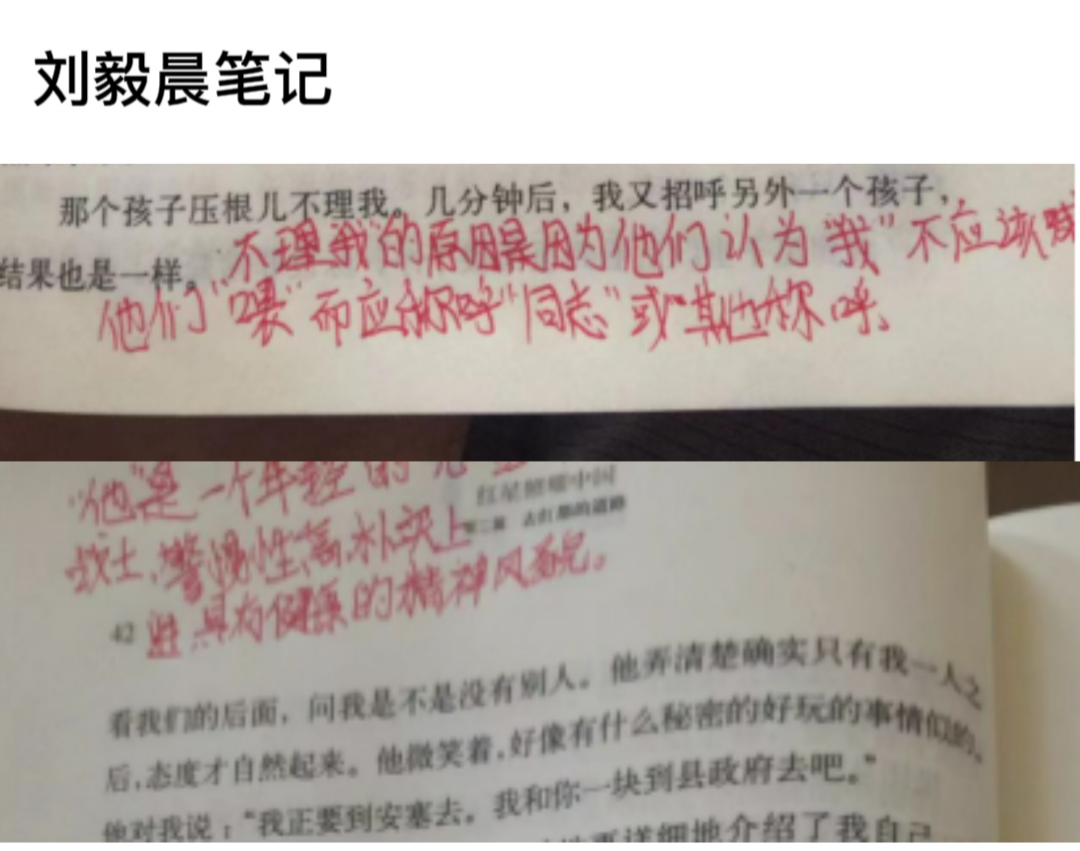 刘毅晨笔记
那个孩子压根儿不理我。几分钟后，我又招呼另外一个孩子，
不理“我”的原因是因为他们认为“我”不应该喊
结果也是一样。
他们“喂”而应称呼“同志”或“其他称呼。
“他”是一个年轻的
红星照耀中国
战士，警惕性高，朴实上
第二篇 去红都的道路
进具有健康的精神风貌。
42
看我们的后面，问我是不是没有别人。他弄清楚确实只有我一人之
后，态度才自然起来。他微笑着，好像有什么秘密的好玩的事情似的，
他对我说：“我正要到安塞去。我和你一块到县政府去吧。”
更详细地介绍了我自己